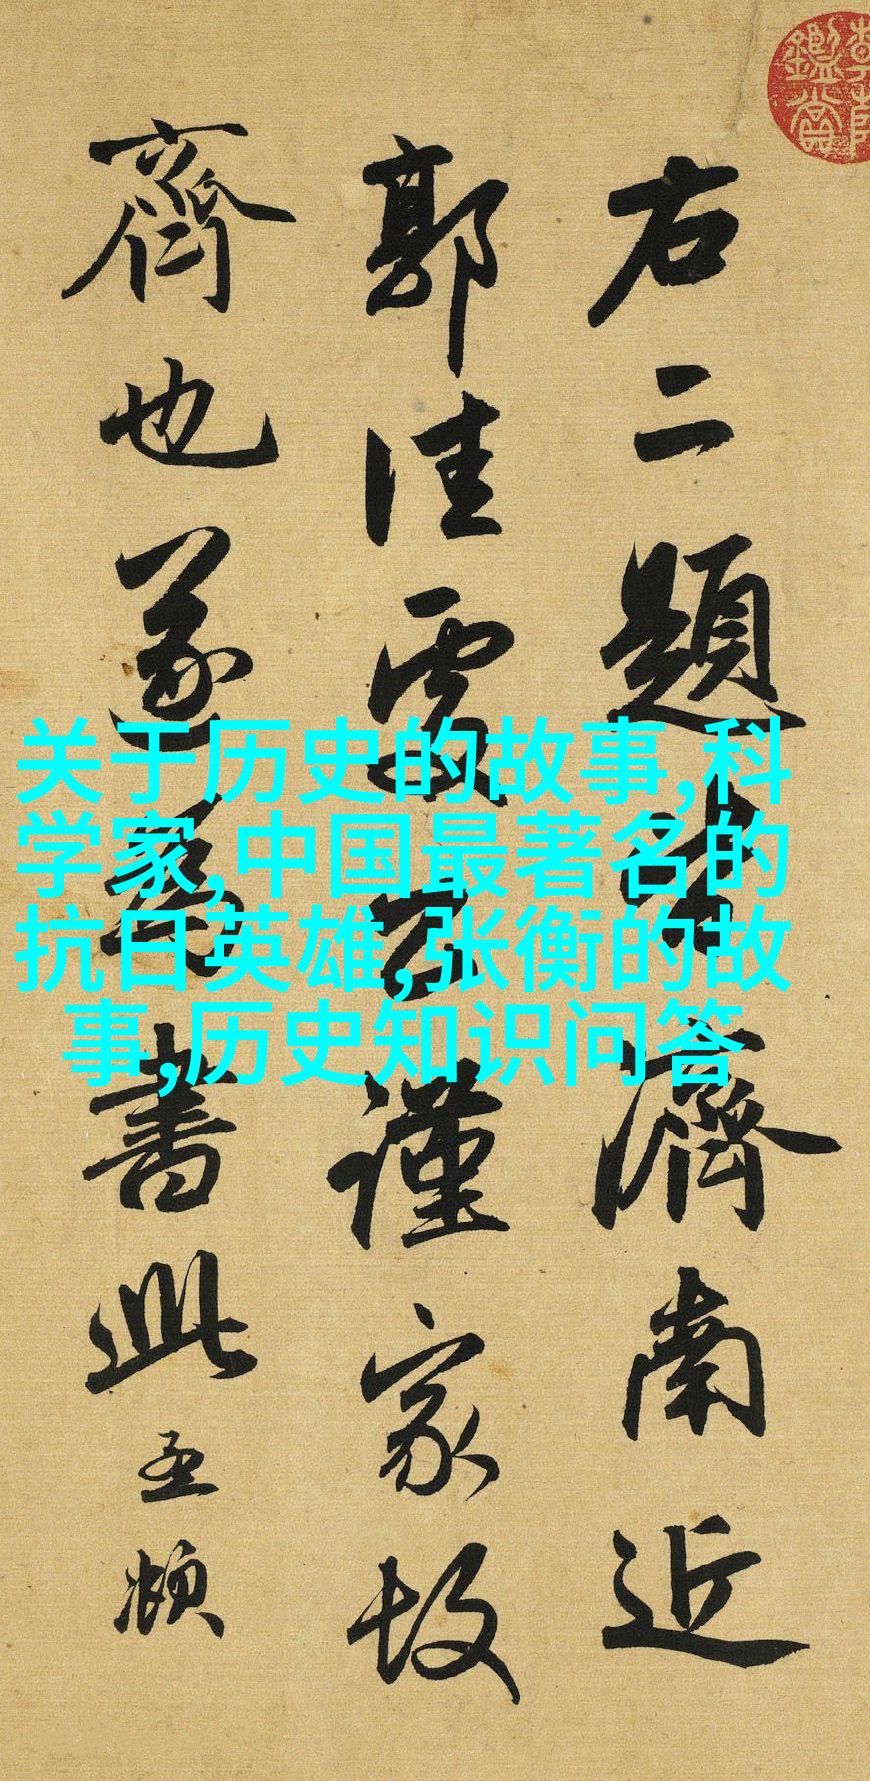 右二題濟南近
郭佳處公謹家故
齊也遂為書此孟頫
鑑賞
关于历史的故事,科
学家,中国最著名的
抗日英雄,张衡的故
事,历史知识问答